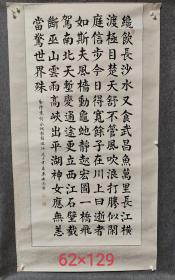 纔飲長沙水又食武昌魚萬里長江橫
渡極目楚天舒不管風吹浪打勝似閑
庭信步今日得寬餘子在川上曰逝者
如斯夫風檣動龜蛇靜起宏圖一橋飛
駕南北天塹變通途更立西江石壁截
斷巫山雲雨高峽出平湖神女應無恙
當驚世界殊
62×129